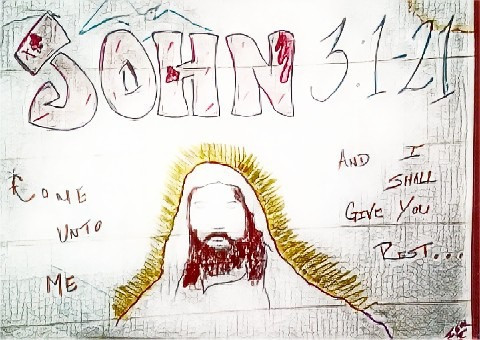 JOHN 3:1-21
COME
UNTO
ME
AND I
SHALL
GIVE YOU
REST...